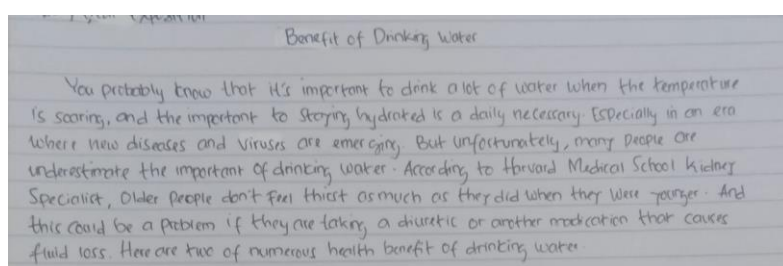 Benefit of Drinking Water
You probably know that it's important to drink a lot of water when the temperature
is soaring, and the important to staying hydrated is a daily necessary. Especially in an era
where new diseases and viruses are emerging. But unfortunately, many people are
underestimate the important of drinking water. According to Harvard Medical School Kidney
Specialist, Older people don't feel thirst as much as they did when they were younger. And
this could be a problem if they are taking a diuretic or another medication that causes
fluid loss. Here are two of numerous health benefit of drinking water.